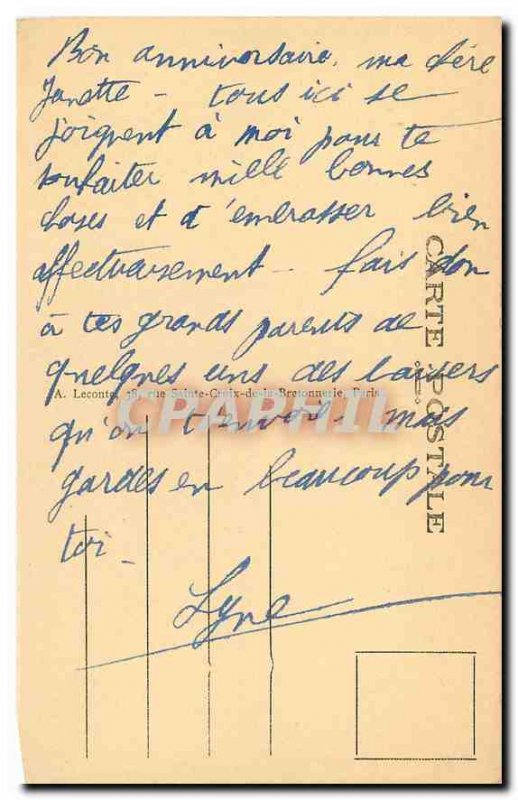 Bon anniversaire, ma chère
Janette – tous ici se
joignent à moi pour te
souhaiter mille bonnes
choses et t'embrasser bien
affectueusement – fais don
à tes grands parents de
quelques uns des baisers
A. Leconte, 38, rue Sainte-Croix-de-la-Bretonnerie, Paris
qu'on t'envoie mais
gardes en beaucoup pour
toi –
Lyne
CARTE POSTALE
CPAPHIL